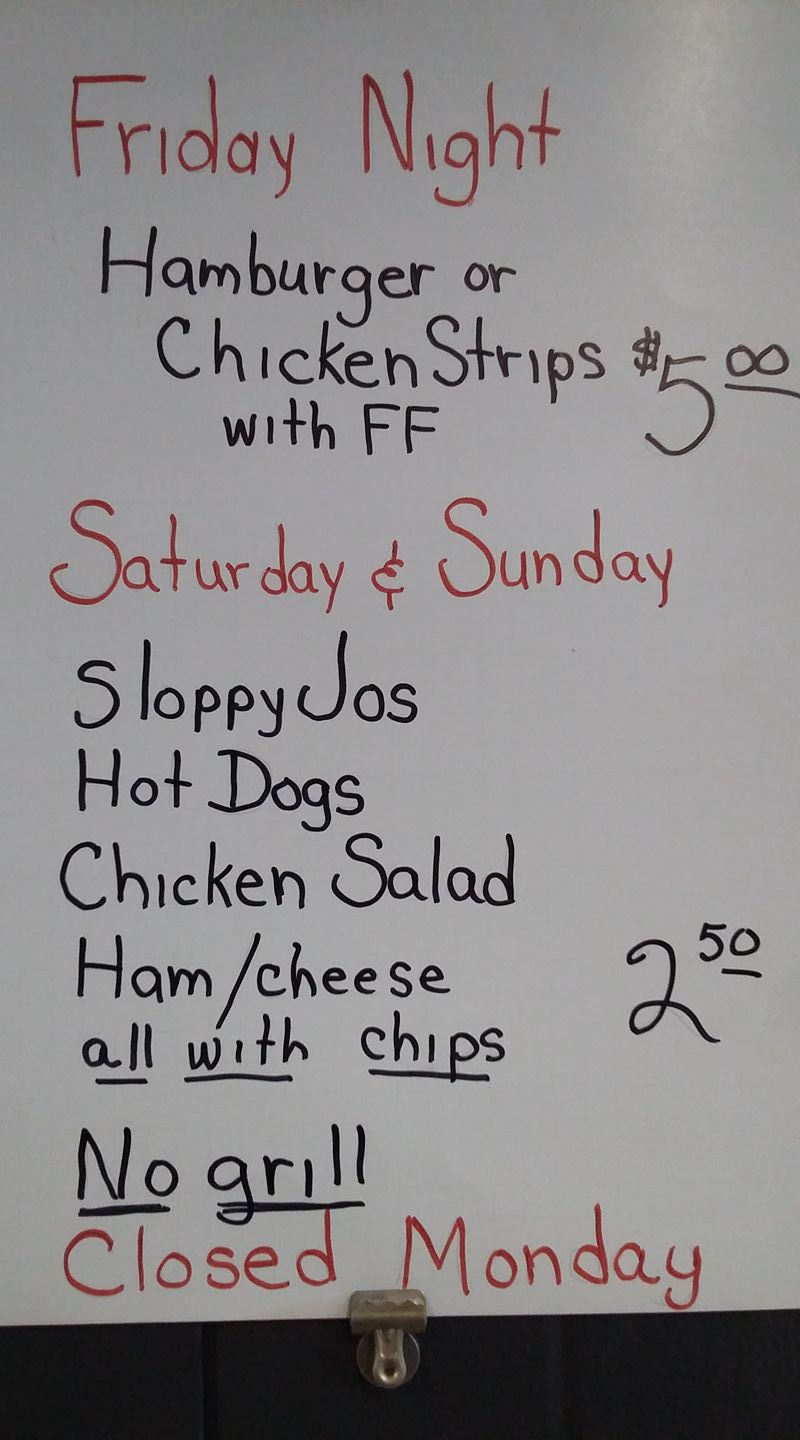 Friday Night
Hamburger or
Chicken Strips $5.00
with FF
Saturday & Sunday
Sloppy Jos
Hot Dogs
Chicken Salad
Ham/cheese 2 50
all with chips
No grill
Closed Monday